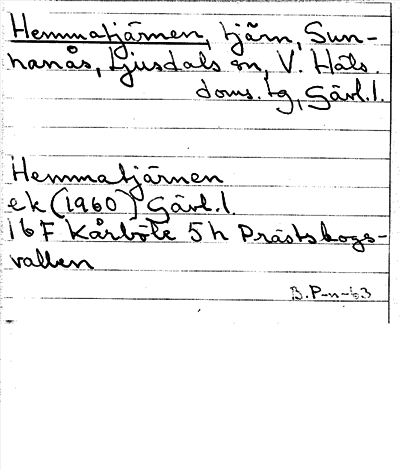 Hemmatjärnen, tjärn, Sun-
nanås, Ljusdals sn, V. Häls.
doms. tg, Gävl.l.
Hemmatjärnen
ek (1960) Gävl.l.
16F Kårböle 5h Prästskogs-
vallen
B.P-n-63